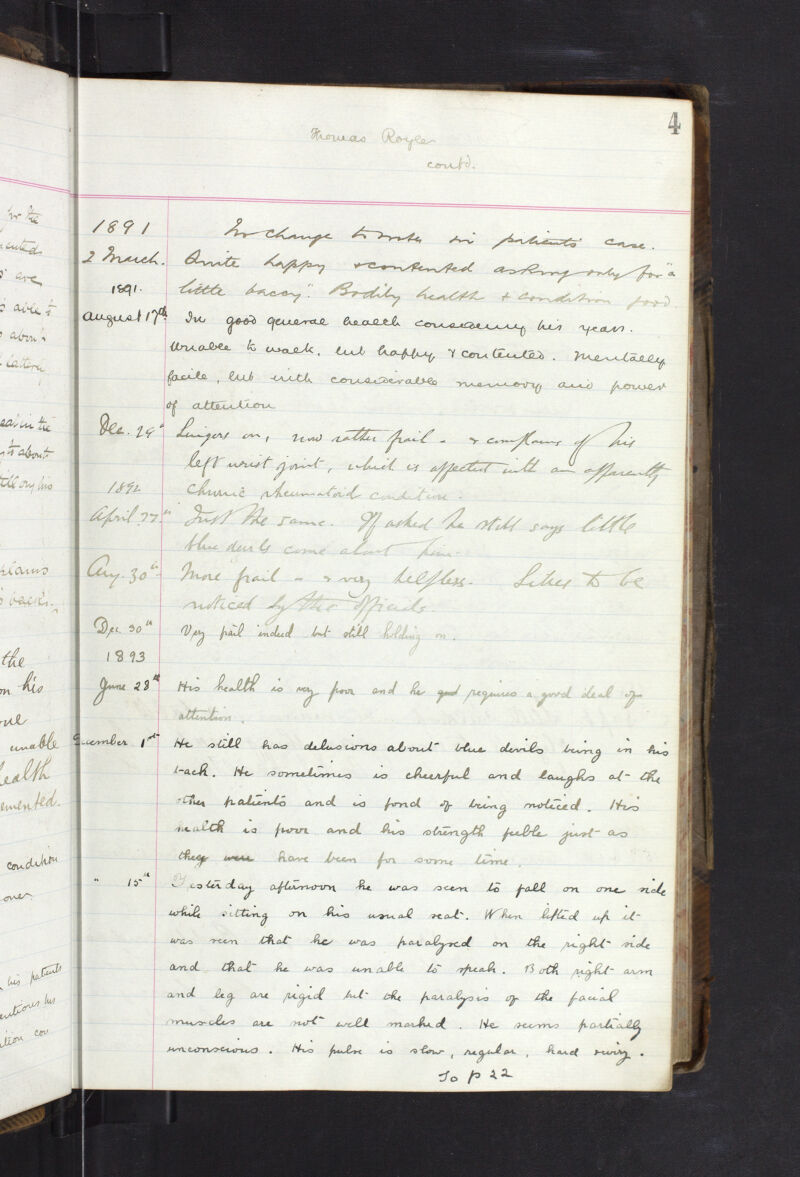 4
Thomas Royle
contd.
1891 No change to note in patients case.
2 March. Quite happy & contented asking only for "a
1891. little baccy". Bodily health & condition good.
August 17th In good general health considering his years.
Unable to walk, but happy & contented. Mentally
facile, but with considerable memory and power
of attention
Dec. 29th Lingers on, now rather frail - & complains of his
left wrist joint, which is affected with an apparently
1892 chronic rheumatoid condition.
April 27th Just the same. If asked he still says little
blue devils come about him.
Aug. 30th More frail - & very helpless. Likes to be
noticed by the officials
Dec 30th Very frail indeed but still holding on.
1893
June 28th His health is very poor and he requires a good deal of
attention.
December 1st He still has delusions about blue devils being in his
back. He sometimes is cheerful and laughs at the
other patients and is fond of being noticed. His
health is poor and his strength feeble just as
they were have been for some time.
" 15th Yesterday afternoon he was seen to fall on one side
while sitting on his usual seat. When lifted up it
was seen that he was paralysed on the right side
and that he was unable to speak. Both right arm
and leg are rigid but the paralysis of the facial
muscles are not well marked. He seems partially
unconscious. His pulse is slow, regular, hard wiry.
To p 22